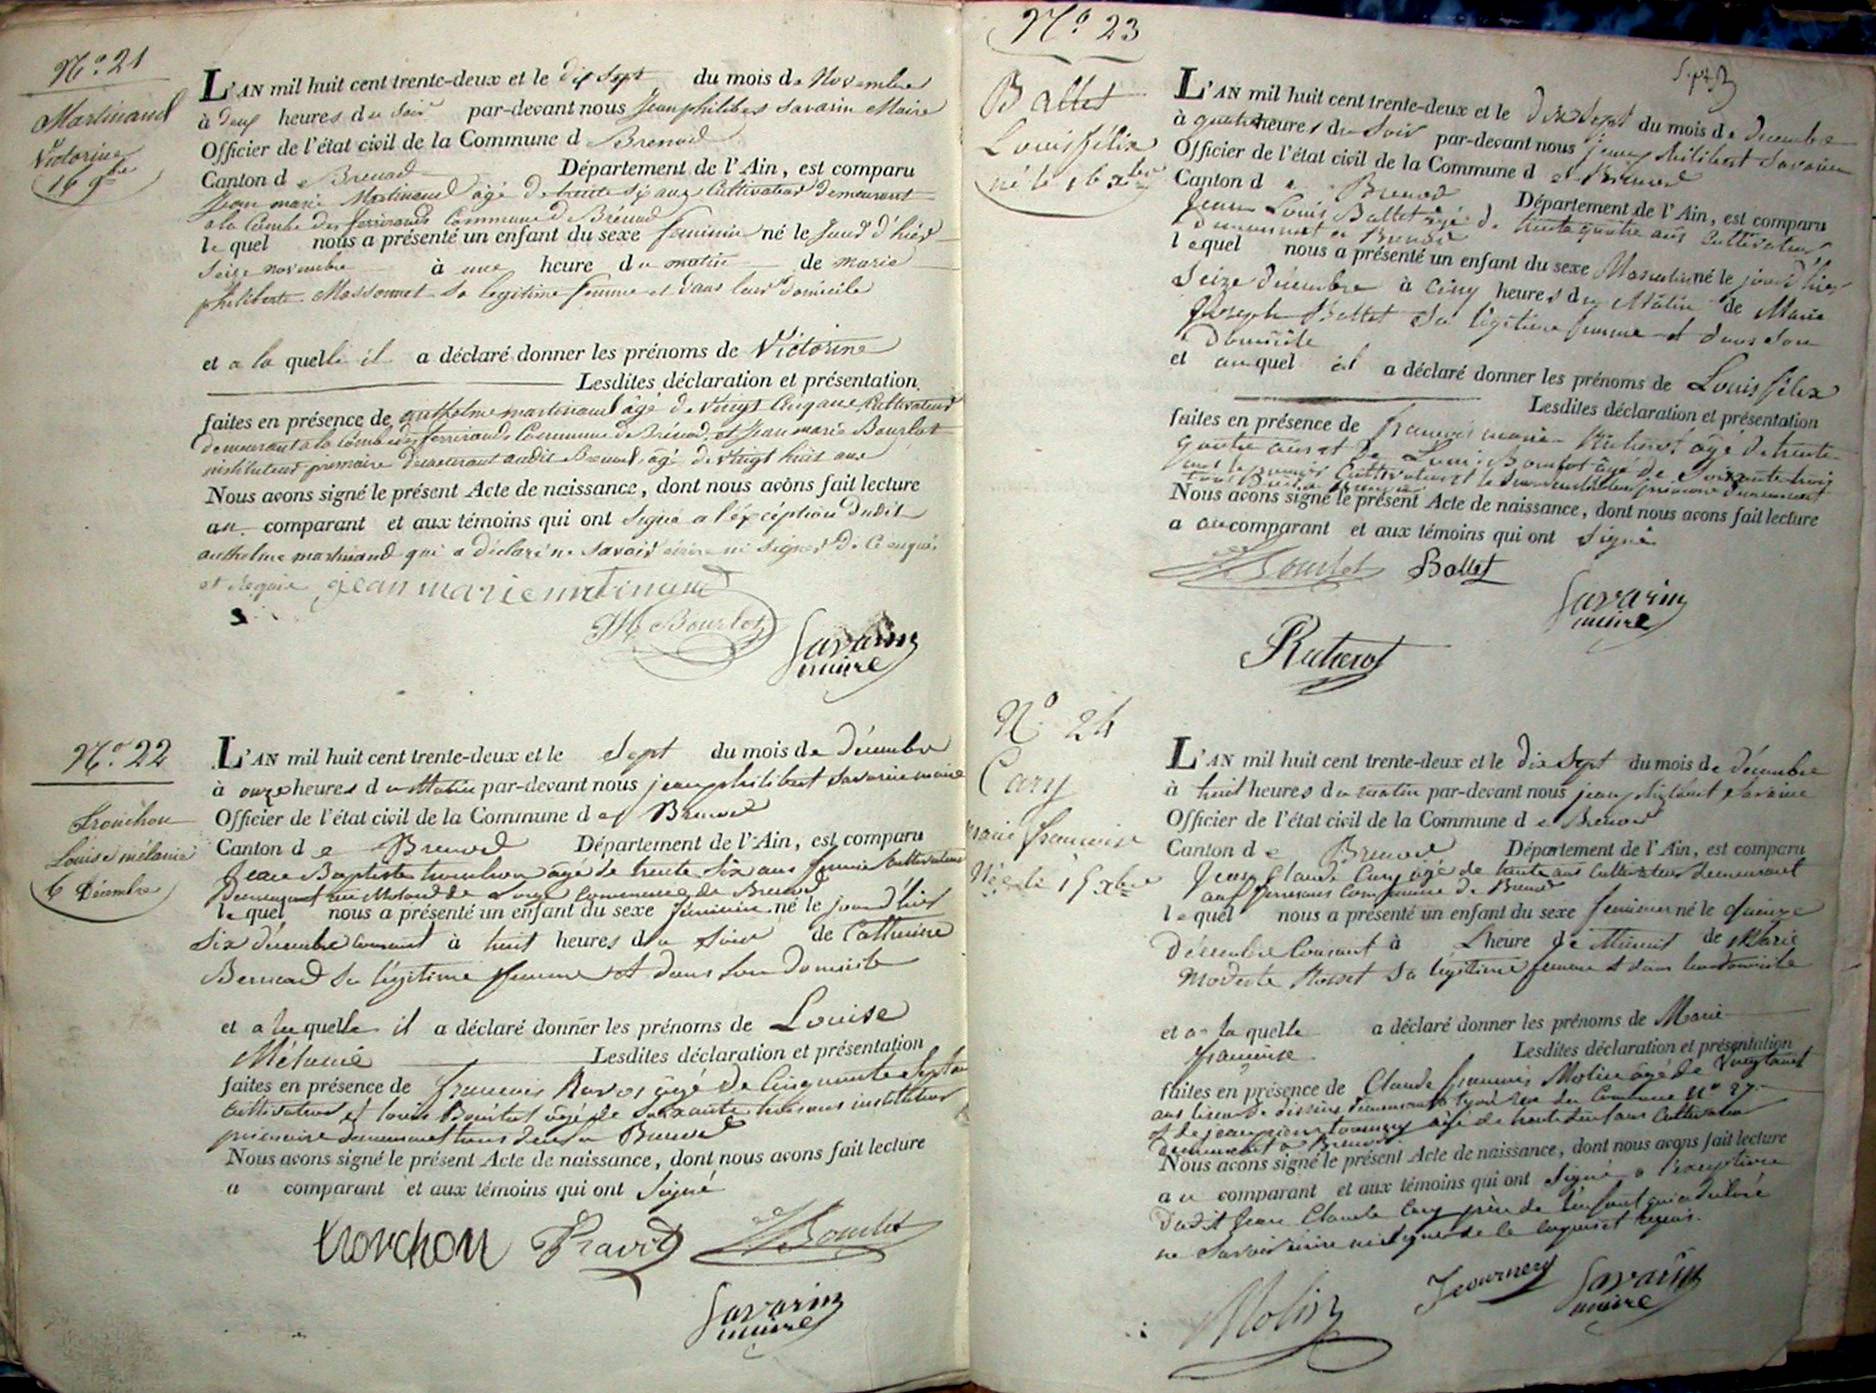 N.o 21
Martinaud
Victorine
16 9bre
L'AN mil huit cent trente-deux et le dix sept du mois de Novembre
à deux heures du soir par-devant nous Jean philibert Savarin Maire
Officier de l'état civil de la Commune d Brenod
Canton de Brenod Département de l'Ain, est comparu
Jean marie Martinaud âgé de trente six ans Cultivateur demeurant
a la Combe des ferrirands Commune de Brénod
lequel nous a présenté un enfant du sexe feminin né le jour d'hier
seize novembre à une heure du matin de marie
philiberte Massonnet sa legitime femme et dans leur domicile
et a la quelle il a déclaré donner les prénoms de Victorine
Lesdites déclaration et présentation
faites en présence de anthelme martinaud âgé de vingt cinq ans Cultivateur
demeurant a la Combe des ferrirands Commune de Brénod, et Jean marie Bourlot
instituteur primaire demeurant audit Brenod, âgé de vingt huit ans
Nous avons signé le présent Acte de naissance, dont nous avons fait lecture
au comparant et aux témoins qui ont signé a l'éxcéption dudit
anthelme martinaud qui a déclaré ne savoir écrire ni signer de ce enquis
et requis jean marie martinaud
JM Bourlot
Savarin
maire
N.o 22
Tronchon
Louise mélanie
6 Décembre
L'AN mil huit cent trente-deux et le sept du mois de décembre
à onze heures du Matin par-devant nous jean philibert savarin maire
Officier de l'état civil de la Commune de Brenod
Canton de Brenod Département de l'Ain, est comparu
Jean Baptiste tronchon âgé de trente six ans Cultivateur
demeurant commune de Brenod
lequel nous a présenté un enfant du sexe féminin né le jour d'hier
six décembre courant à huit heures du soir de Catherine
Bernard sa légitime femme et dans son domicile
et a la quelle il a déclaré donner les prénoms de Louise
Mélanie Lesdites déclaration et présentation
faites en présence de francois Ravot âgé de Cinquante sept ans
cultivateur et louis Bourlot âgé de soixante trois ans instituteur
primaire demeurant tous deux a Brenod
Nous avons signé le présent Acte de naissance, dont nous avons fait lecture
a comparant et aux témoins qui ont signé
tronchon Ravot Bourlot
Savarin
maire
N.o 23
Ballet
Louis félix
né le 16 xbre
L'AN mil huit cent trente-deux et le dix sept du mois de decembre
à quatre heures du soir par-devant nous jean philibert Savarin
Officier de l'état civil de la Commune de Brenod
Canton de Brenod Département de l'Ain, est comparu
Jean Louis Ballet âgé de trente quatre ans Cultivateur
demeurant a Brenod
lequel nous a présenté un enfant du sexe Masculin né le jour d'hier
Seize décembre à cinq heures du Matin de Marie
Joseph Ballet sa légitime femme et dans son
domicile
et auquel il a déclaré donner les prénoms de Louis félix
Lesdites déclaration et présentation
faites en présence de francois marie âgé de trente
quatre ans et de Louis Bourlot âgé de soixante trois
Nous avons signé le présent Acte de naissance, dont nous avons fait lecture
a au comparant et aux témoins qui ont signé
Bourlot Ballet
Savarin
maire
N.o 24
Cary
marie francoise
Née le 15 xbre
L'AN mil huit cent trente-deux et le dix sept du mois de décembre
à huit heures du matin par-devant nous jean philibert Savarin
Officier de l'état civil de la Commune de Brenod
Canton de Brenod Département de l'Ain, est comparu
Jean Claude Cary âgé de trente ans Cultivateur demeurant
aux Commune de Brenod
lequel nous a présenté un enfant du sexe feminin né le quinze
Décembre Courant à L'heure de Minuit de Marie
Modeste sa légitime femme et dans leur domicile
et a la quelle a déclaré donner les prénoms de Marie
francoise Lesdites déclaration et présentation
faites en présence de Claude francois Molin âgé de vingt
ans demeurant a Lyon rue du Commerce N.o 27
et de jean pierre tournery âgé de trente deux ans Cultivateur
demeurant a Brenod
Nous avons signé le présent Acte de naissance, dont nous avons fait lecture
au comparant et aux témoins qui ont signé a l'exception
dudit Jean Claude Cary père de l'enfant qui a déclaré
ne savoir écrire ni signer de le enquis et requis.
Molin Tournery Savarin
maire